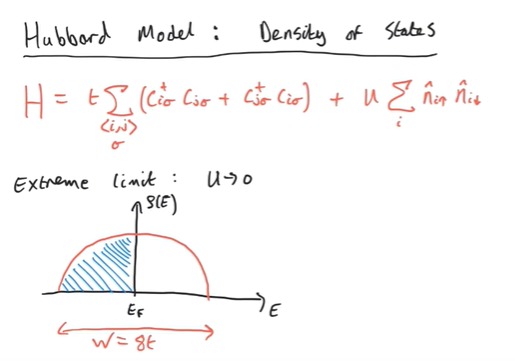 Hubbard Model : Density of States
H = t ∑ (c†iσ cjσ + c†jσ ciσ) + U ∑ n̂i↑ n̂i↓
<i,j> i
σ
Extreme limit : U→0
g(E)
EF E
W = 8t